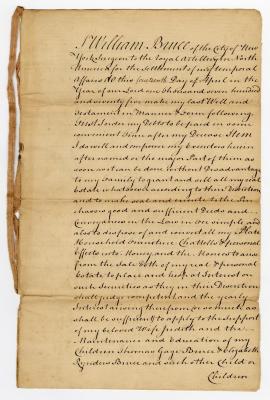 I William Bruce of the City of New
York Surgeon to the Royal Artillery in North
America for the Settlement of my temporal
Affairs do this fourteenth Day of April in the
Year of our Lord one thousand seven hundred
and seventy five make my last Will and
Testament in Manner & Form following
First I order my Debts to be paid in some
convenient Time after my Decease Item
I do will and impower my Executors herein
after named or the major Part of them as
soon as it can be done without Disadvantage
to my Family to grant and sell all my real
Estate whatsoever according to their Discretion
and to make seal and execute to the Pur
chasers good and sufficient Deeds and
Conveyances in the Law in Fee simple and
also to dispose of and convert all my Plate
Household Furniture Chattells & personal
Effects into Money and the Monies to arise
from the Sale both of my real & personal
Estate to place and keep at Interest on
such Securities as they in their Discretion
shall judge competent and the yearly
Interest arising therefrom or so much as
shall be sufficient to apply to the Support
of my beloved Wife Judith and the
Maintenance and Education of my
Children Thomas Gage Bruce & Elizabeth
Rynders Bruce and such other Child or
Children